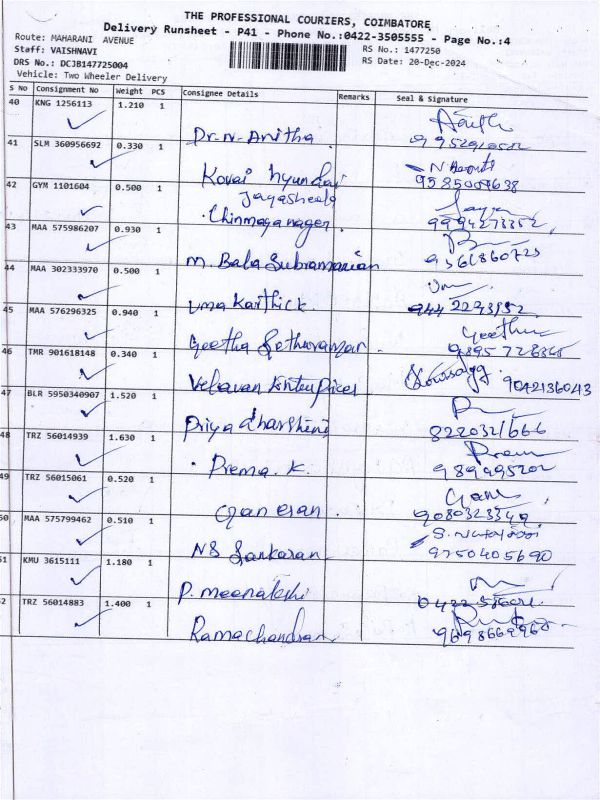 THE PROFESSIONAL COURIERS, COIMBATORE
Delivery Runsheet - P41 - Phone No.:0422-3505555 - Page No.:4
Route: MAHARANI AVENUE
RS No.: 1477250
Staff: VAISHNAVI
RS Date: 20-Dec-2024
DRS No.: DCJB147725004
Vehicle: Two Wheeler Delivery
S No Consignment No Weight PCS Consignee Details Remarks Seal & Signature
40 KNG 1256113 1.210 1
Dr. N. Anitha
41 SLM 360956692 0.330 1
Kovai Hyundai
42 GYM 1101604 0.500 1
Jayasheela
Chinmaya nager.
43 MAA 575986207 0.930 1
M. Bala Subramanian
44 MAA 302333970 0.500 1
Uma Karthick.
45 MAA 576296325 0.940 1
Geetha Sethuraman
46 TMR 901618148 0.340 1
47 BLR 5950340907 1.520 1
Priya dharshini
8220321666
48 TRZ 56014939 1.630 1
Prema. K.
49 TRZ 56015061 0.520 1
Ganesan.
9080323349
50 MAA 575799462 0.510 1
NS Sankaran
9750405690
51 KMU 3615111 1.180 1
P. meenatchi
52 TRZ 56014883 1.400 1
Ramachandran